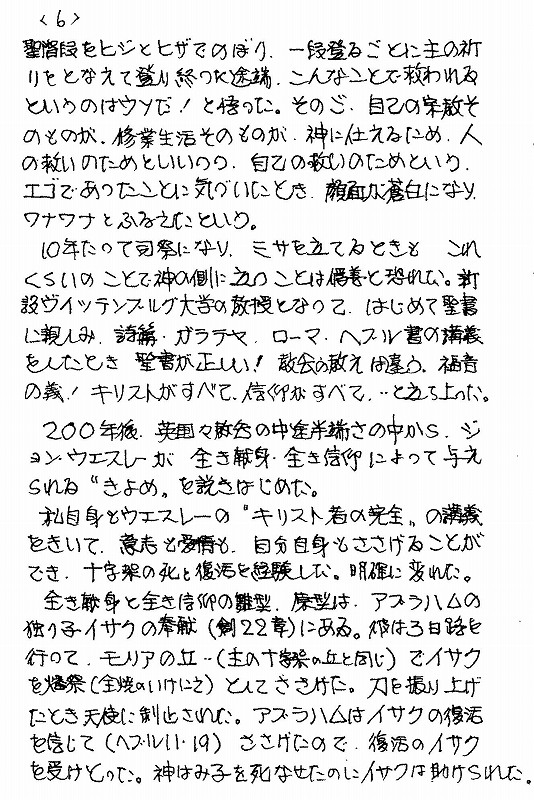 <6>
聖階段をヒジとヒザでのぼり、一段登るごとに主の祈
りをとなえて登り終った途端、こんなことで救われる
というのはウソだ！と悟った。そのご、自己の宗教そ
のものが、修業生活そのものが、神に仕えるため、人
の救いのためといいつつ、自己の救いのためという、
エゴであったことに気づいたとき、顔面は蒼白になり、
ワナワナとふるえたという。
10年たって司祭になり、ミサを立てるときも これ
くらいのことで神の側に立つことは偽善と恐れた。新
設ヴィッテンブルグ大学の教授となって、はじめて聖書
に親しみ、詩篇・ガラテヤ、ローマ・ヘブル書の講義
をしたとき 聖書が正しい！教会の教えは違う。福音
の義！キリストがすべて、信仰がすべて、‥と立ち上った。
200年後、英国々教会の中途半端さの中から、ジ
ョン・ウエスレーが 全き献身・全き信仰によって与え
られる〝きよめ〟を説きはじめた。
私自身もウエスレーの『キリスト者の完全』の講義
をきいて、意志も愛情も、自分自身もささげることが
でき、十字架の死と復活を経験した。明確に変れた。
全き献身と全き信仰の雛型、原型は、アブラハムの
独り子イサクの奉献（創22章）にある。彼は3日路を
行って、モリアの丘‥（主の十字架の丘と同じ）でイサク
を燔祭（全焼のいけにえ）としてささげた。刀を振り上げ
たとき天使に制止された。アブラハムはイサクの復活
を信じて（ヘブル11・19）ささげたので、復活のイサク
を受けとった。神はみ子を死なせたのにイサクは助けられた。